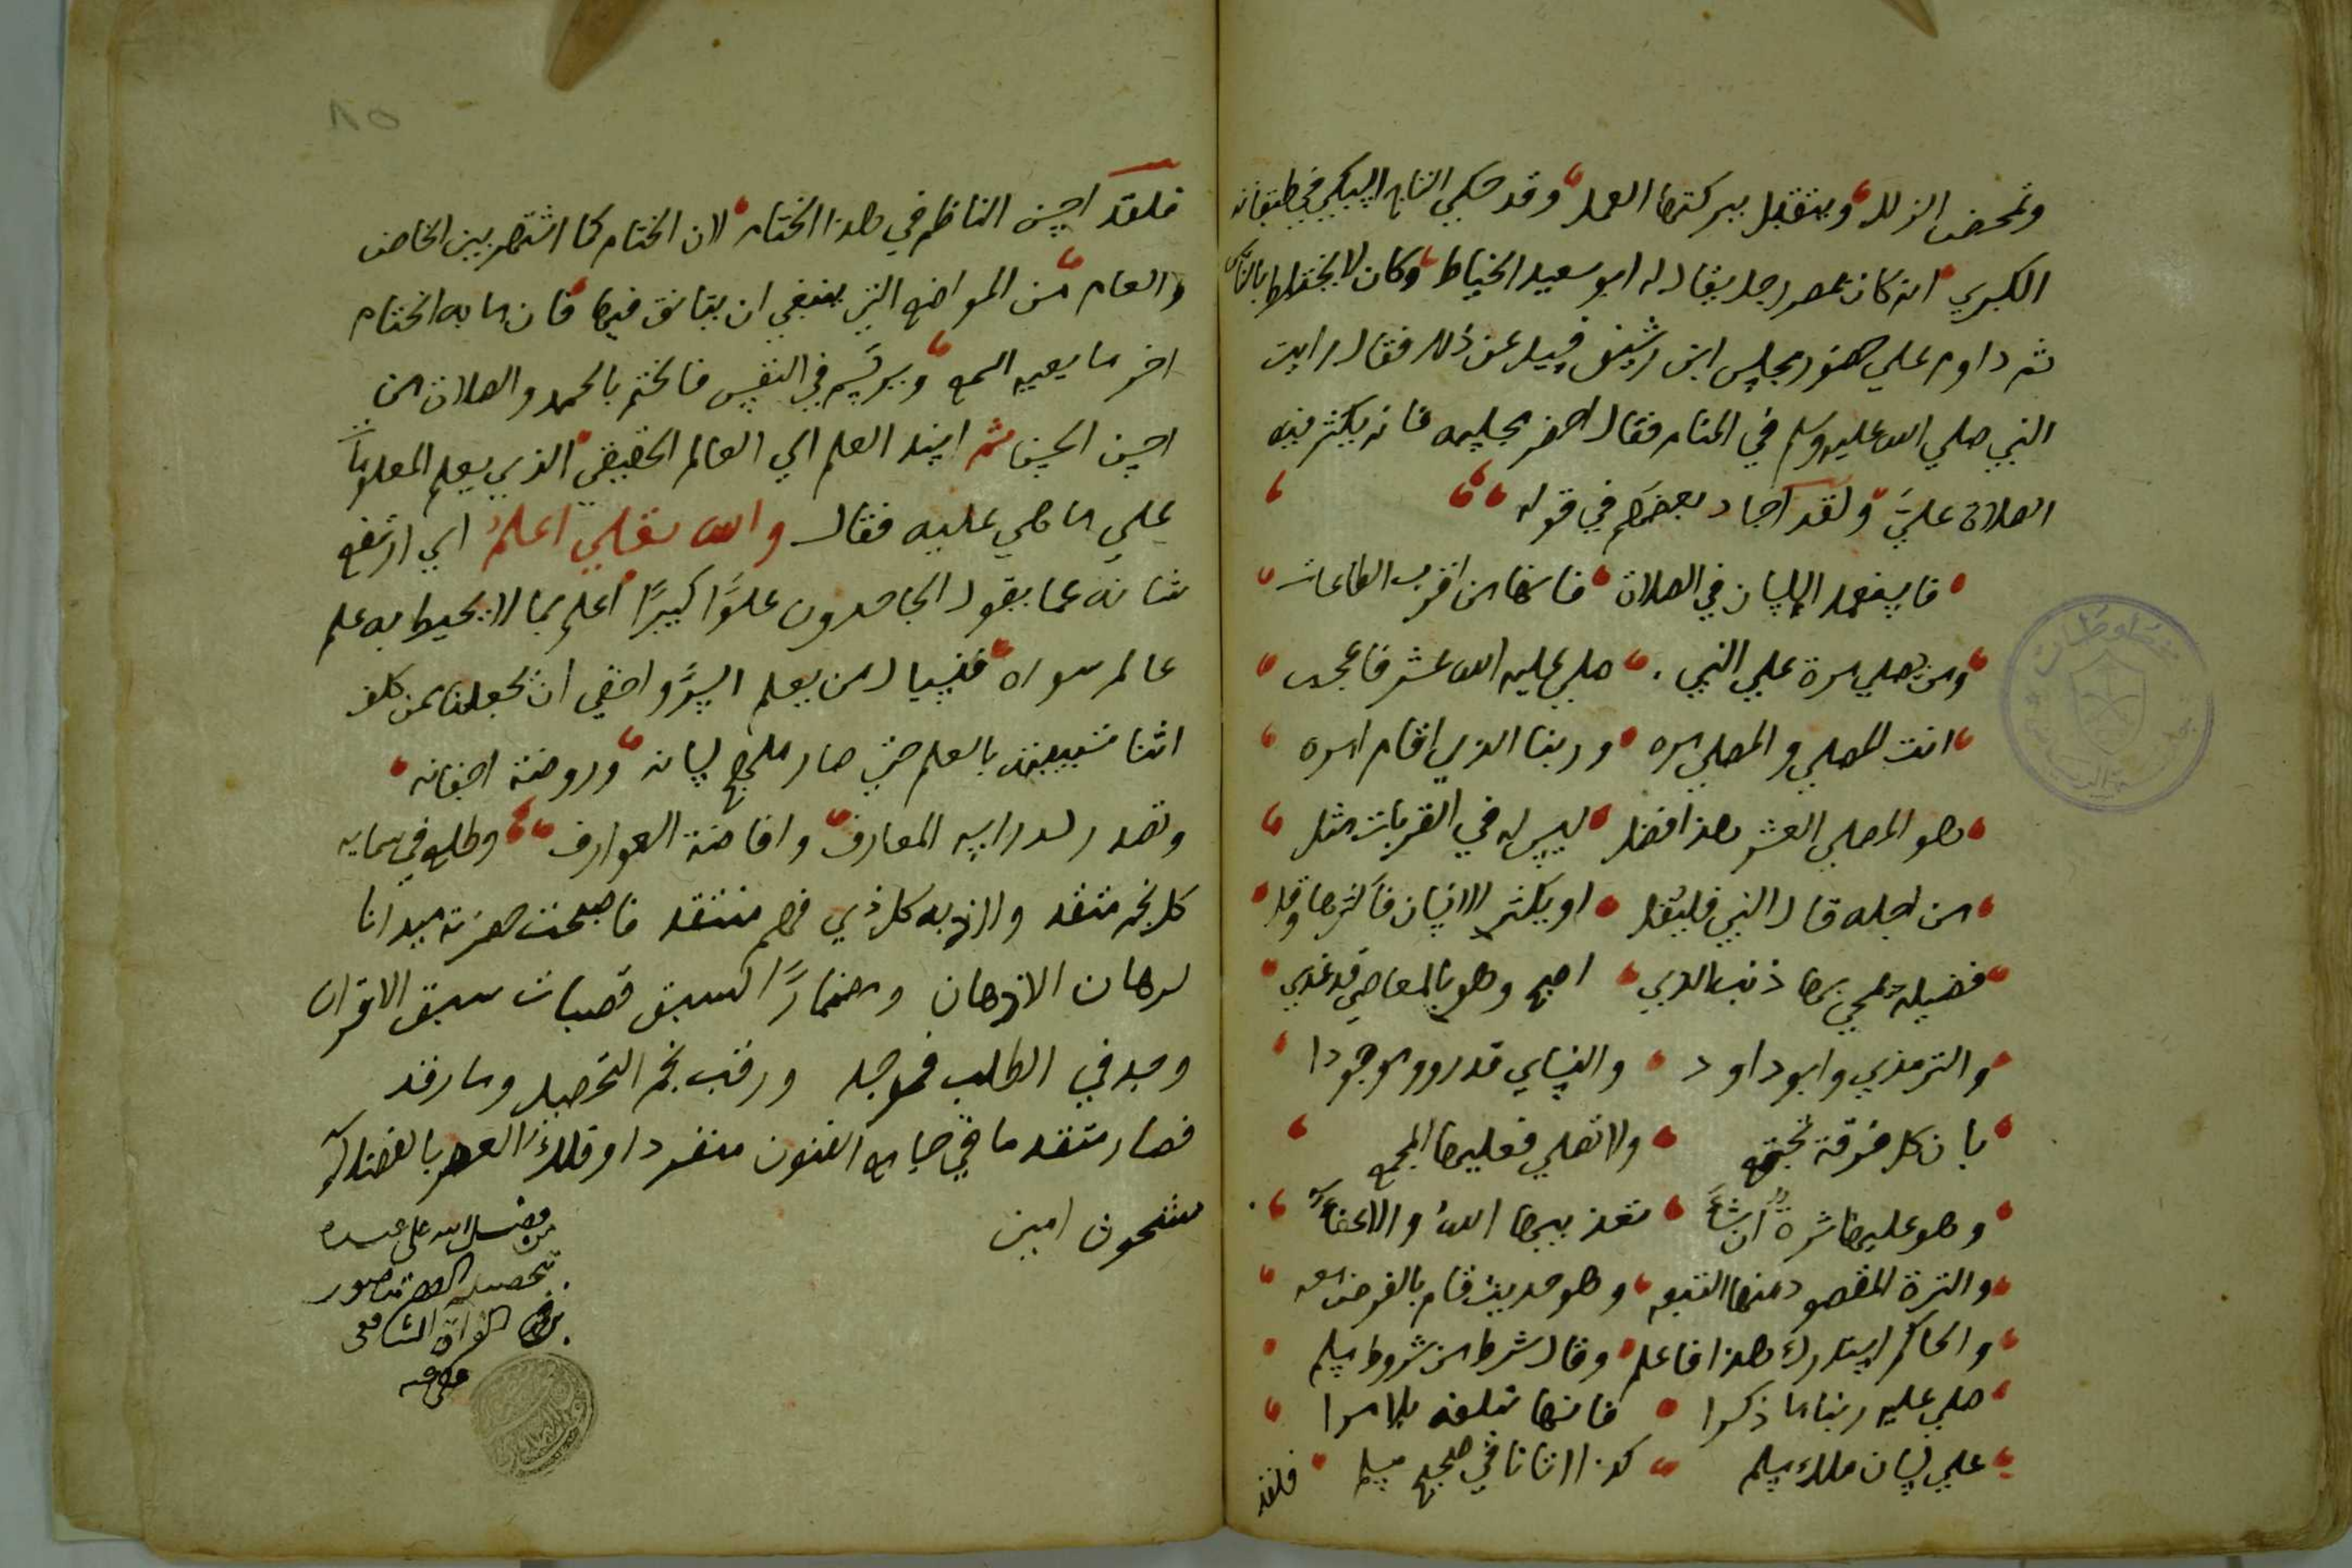 وتمحض الزلل ويتقبل ببركتها العمل وقد حكي التاج السبكي في طبقاته
الكبري انه كان بمصر رجل يقال له ابو سعيد الخياط وكان لا يختلط بالناس
ثم داوم علي حضور مجلس ابن رشيق فسيل عن ذلك فقال رايت
النبي صلي الله عليه وسلم في المنام فقال احضر مجلسه فانه يكثر فيه
الصلاة عليّ ولقد اجاد بعضهم في قوله
اللسان في الصلاة فانها من اقرب الطاعات
ومن يصلي مرة علي النبي صلي عليه الله عشر فاعجب
انت المصلي والمصلي مره وربنا الذي اقام امره
هو المصلي العشر هذا افضل ليس له في القربات مثل
من اجله قال النبي فليقل او يكثر الانسان فاكثرها وقل
فضيلة يمحي بها ذنب الذي اصبح وهو بالمعاصي قد غذي
والترمذي وابو داود والنساي قد رووه موجودا
بان كل فرقة تجتمع ولا تصلي فعليها المجمع
وهو عليها ترة ان شاء تعذيبها الله والا عفاء
والترة المقصود منها التبعه وهو حديث قام بالفرض معه
والحاكم استدرك هذا فاعلم وقال شرط من شروط مسلم
صلي عليه ربنا ما ذكرا فانها تبلغه بلا مرا
علي لسان ملك يسلم كذا اتانا في صحيح مسلم
فلقد
فلقد احسن الناظم في هذا الختام لان الختام كما اشتهر بين الخاص
والعام من المواضع التي ينبغي ان يتانق فيها فان ما به الختام
اخر ما يعيه السمع ويرتسم في النفس فالختم بالحمد والصلاة من
احسن الحسن ثم اسند العلم الي العالم الحقيقي الذي يعلم المعلومات
علي ما هي عليه فقال والله تعلي اعلم اي ارتفع
شانه عما يقول الجاحدون علوًا كبيرًا اعلم بما لا يحيط به علم
عالم سواه فنسيال من يعلم السر واخفي ان تجعلنا ممن كلف
بالعلم حتي صار لسانه وروضة اجفانه
وتصدر لدراسه المعارف وافاضة العوارف وطلع في سمايه
كل نجم متقد والاذ به كل ذي فهم منتقد فاصبحت حضرته ميدانا
لرهان الاذهان ومضمارًا لسبق قصبات سبق الاقران
وجد في الطلب فوجد ورقب نجم التحصيل وما رقد
فصار متقدما في جامع الفنون منفردا وفلك العصر بالفضلاء
مشحون امين
من فضل الله على عبده
تحصيله
الشافعي